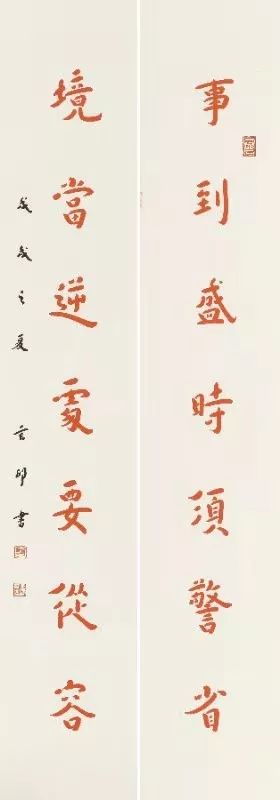 事到盛時須警省
境當逆處要從容
戊戌之夏 書